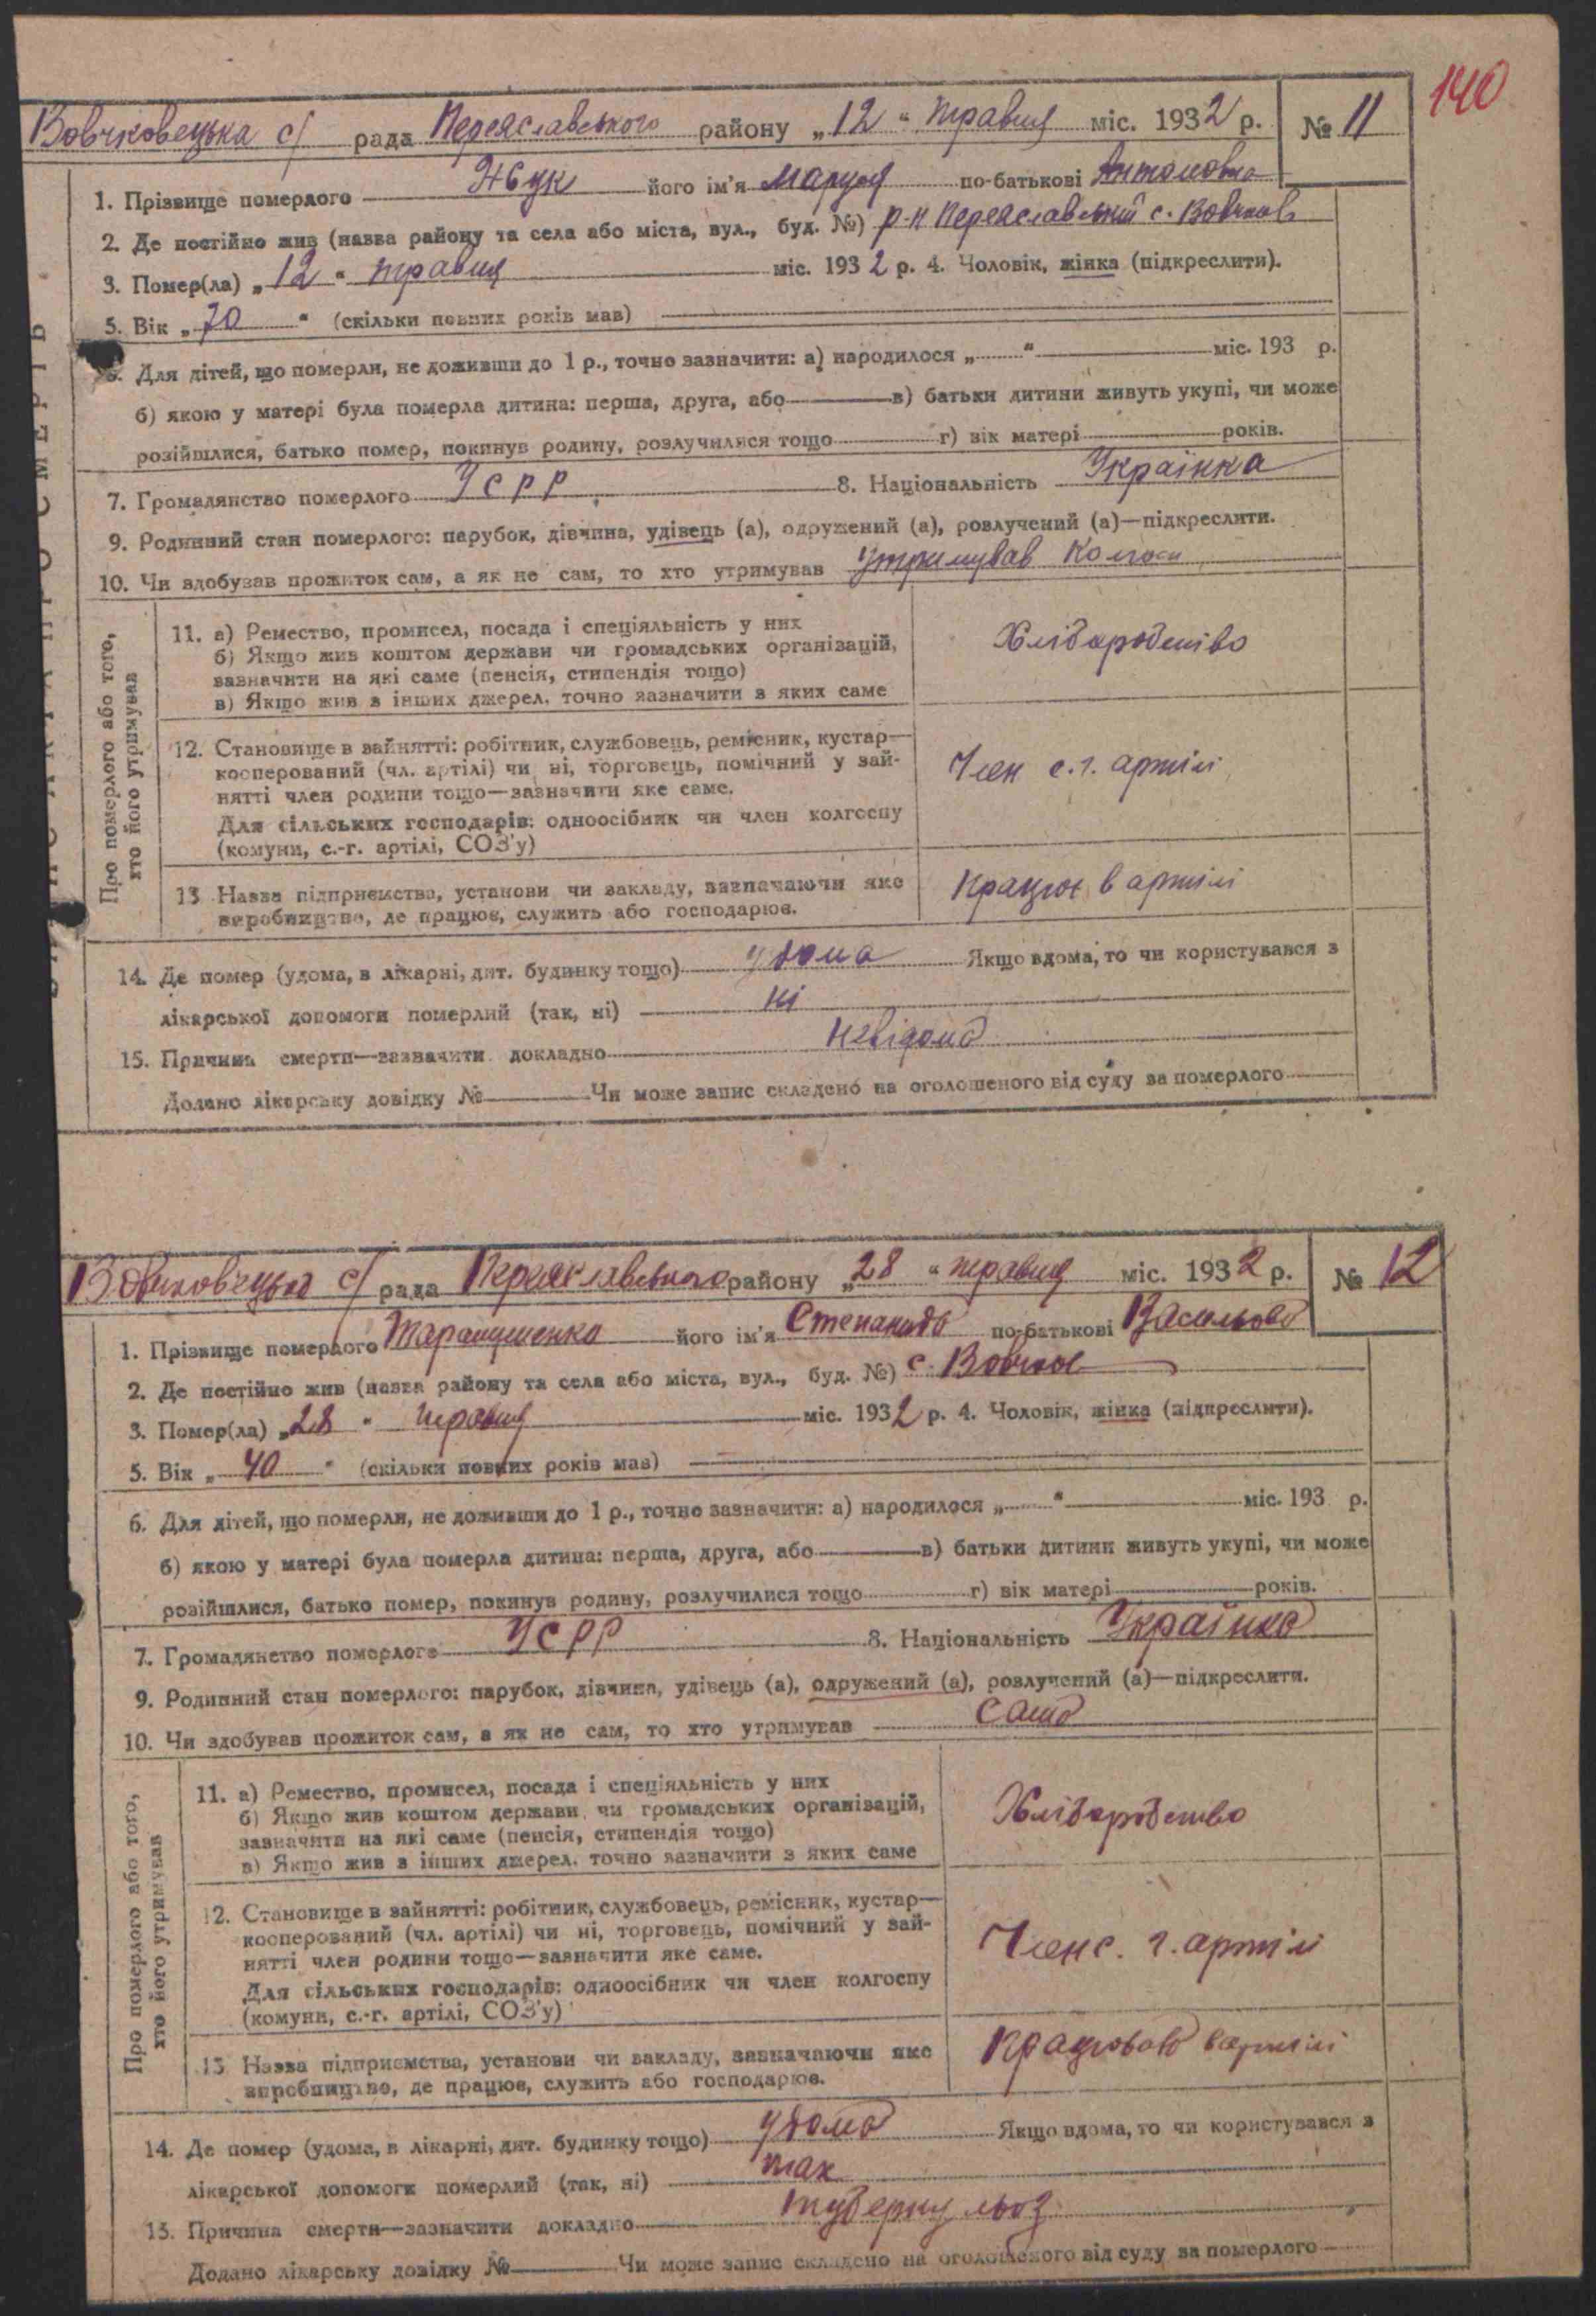 140
Вовчковецька с/ рада Переяславського району „12" травня міс. 1932 р. № 11
1. Прізвище померлого Жук його ім'я Маруся по-батькові Антоновна
2. Де постійно жив (назва району та села або міста, вул., буд. №) р-н Переяславський с. Вовчков
3. Помер(ла) „12" травня міс. 1932 р. 4. Чоловік, жінка (підкреслити).
5. Вік „70" (скільки повних років мав)
6. Для дітей, що померли, не доживши до 1 р., точно зазначити: а) народилося „ " міс. 193 р.
б) якою у матері була померла дитина: перша, друга, або в) батьки дитини живуть укупі, чи може
розійшлися, батько помер, покинув родину, розлучилися тощо г) вік матері років.
7. Громадянство померлого УСРР 8. Національність Українка
9. Родинний стан померлого: парубок, дівчина, удівець (а), одружений (а), розлучений (а)—підкреслити.
10. Чи здобував прожиток сам, а як не сам, то хто утримував Утримував
Про померлого або того,
хто його утримував
11. а) Ремество, промисел, посада і спеціяльність у них
б) Якщо жив коштом держави чи громадських організацій,
зазначити на які саме (пенсія, стипендія тощо)
в) Якщо жив з інших джерел, точно зазначити з яких саме
Хліборобство
12. Становище в зайнятті: робітник, службовець, ремісник, кустар—
кооперований (чл. артілі) чи ні, торговець, помічний у зай-
нятті член родини тощо—зазначити яке саме.
Для сільських господарів: одноосібник чи член колгоспу
(комуни, с.-г. артілі, СОЗ'у)
Член с. г. артілі
13 Назва підприємства, установи чи закладу, зазначаючи яке
виробництво, де працює, служить або господарює.
Працює в артілі
14. Де помер (удома, в лікарні, дит. будинку тощо) удома Якщо вдома, то чи користувався з
лікарської допомоги померлий (так, ні) ні
15. Причина смерти—зазначити докладно невідома
Додано лікарську довідку № Чи може запис складено на оголошеного від суду за померлого
Вовчковецька с/ рада Переяславського району „28" травня міс. 1932 р. № 12
1. Прізвище померлого Тарапушенко його ім'я Степанида по-батькові
2. Де постійно жив (назва району та села або міста, вул., буд. №) с. Вовчков
3. Помер(ла) „28" травня міс. 1932 р. 4. Чоловік, жінка (підкреслити).
5. Вік „40" (скільки повних років мав)
6. Для дітей, що померли, не доживши до 1 р., точно зазначити: а) народилося „ " міс. 193 р.
б) якою у матері була померла дитина: перша, друга, або в) батьки дитини живуть укупі, чи може
розійшлися, батько помер, покинув родину, розлучилися тощо г) вік матері років.
7. Громадянство померлого УСРР 8. Національність Українка
9. Родинний стан померлого: парубок, дівчина, удівець (а), одружений (а), розлучений (а)—підкреслити.
10. Чи здобував прожиток сам, а як не сам, то хто утримував сама
Про померлого або того,
хто його утримував
11. а) Ремество, промисел, посада і спеціяльність у них
б) Якщо жив коштом держави чи громадських організацій,
зазначити на які саме (пенсія, стипендія тощо)
в) Якщо жив з інших джерел, точно зазначити з яких саме
Хліборобство
12. Становище в зайнятті: робітник, службовець, ремісник, кустар—
кооперований (чл. артілі) чи ні, торговець, помічний у зай-
нятті член родини тощо—зазначити яке саме.
Для сільських господарів: одноосібник чи член колгоспу
(комуни, с.-г. артілі, СОЗ'у)
Член с. г. артілі
13 Назва підприємства, установи чи закладу, зазначаючи яке
виробництво, де працює, служить або господарює.
Працювала в артілі
14. Де помер (удома, в лікарні, дит. будинку тощо) удома Якщо вдома, то чи користувався з
лікарської допомоги померлий (так, ні) так
15. Причина смерти—зазначити докладно туберкульоз
Додано лікарську довідку № Чи може запис складено на оголошеного від суду за померлого